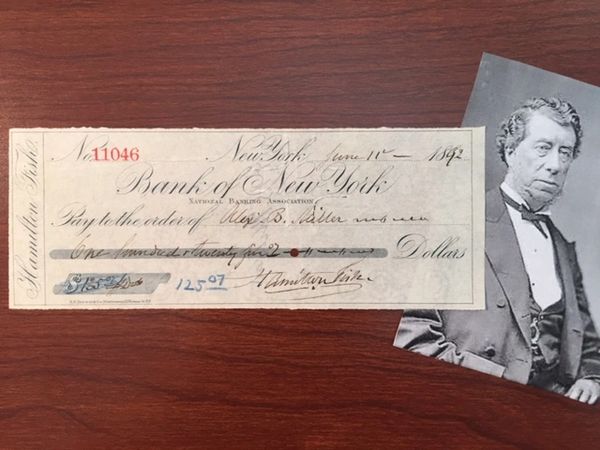 Hamilton Fish.
No. 11046 New York June 15 1892
Bank of New York
NATIONAL BANKING ASSOCIATION
Pay to the order of Alex B. Miller
One hundred & twenty five Dollars
125 07 Hamilton Fish